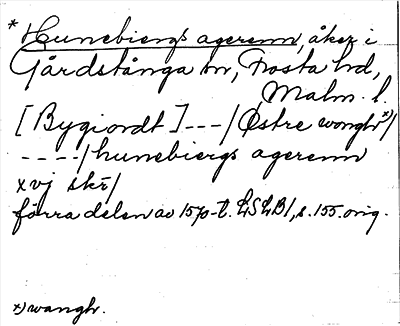 * Hunebiergs agerenn, åker i
Gårdstånga sn, Frosta hd,
Malm. l.
[Bygiordt] --- / Østre wonghr x)/
---- / hunebiergs agerenn
xvj skr/
förra delen av 1570-t. LSLB1, s. 155. orig.
x) wanghr.